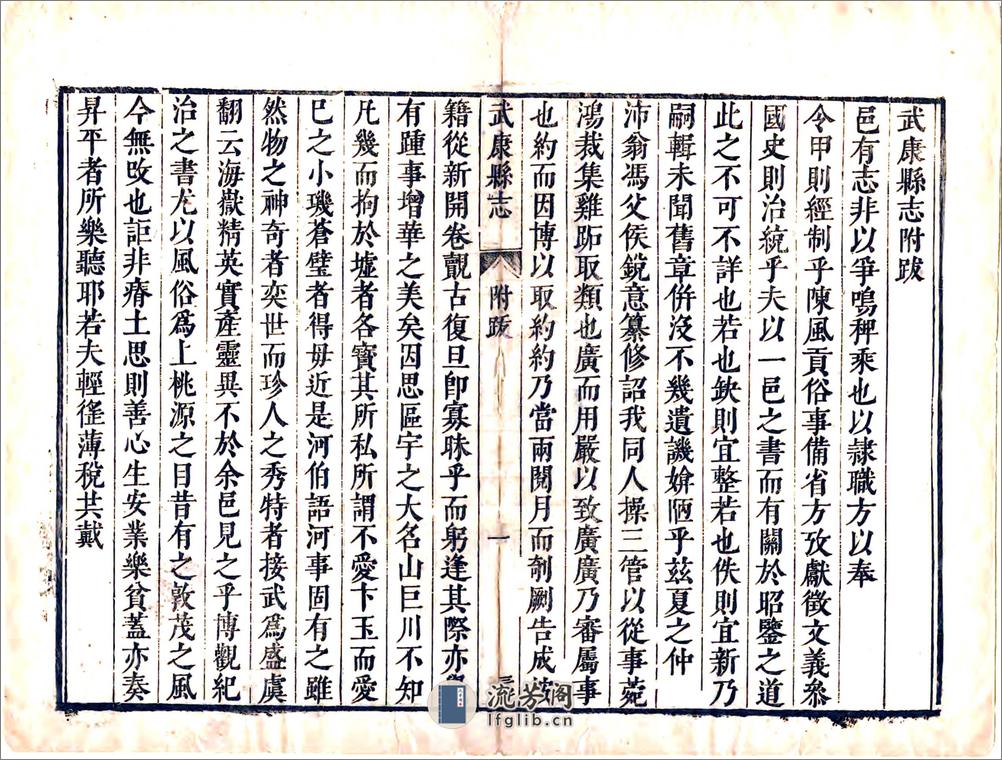 武康縣志附跋
邑有志非以爭鳴稗乘也以隷職方以奉
令甲則經制乎陳風貢俗事備省方攷獻徵文義叅
國史則治統乎夫以一邑之書而有關於昭鑒之道
此之不可不詳也若也缺則宜整若也佚則宜新乃
嗣輯未聞舊章倂沒不幾遺譏媕陋乎茲夏之仲
沛翁馮父侯銳意纂修詔我同人操三管以從事菀
鴻裁集雞跖取類也廣而用嚴以致廣廣乃審屬事
也約而因博以取約約乃當兩閱月而剞劂告成
武康縣志 附跋 一
籍從新開卷覿古復旦卽寡昧乎而躬逢其際亦
有踵事增華之美矣因思區宇之大名山巨川不知
凡幾而拘於墟者各寶其所私所謂不愛卞玉而愛
巳之小璣蒼璧者得毋近是河伯語河事固有之雖
然物之神奇者奕世而珍人之秀特者接武爲盛虞
翻云海嶽精英實產靈異不於余邑見之乎博觀紀
治之書尤以風俗爲上桃源之日昔有之敦茂之風
今無攺也詎非瘠土思則善心生安業樂貧蓋亦奏
昇平者所樂聽耶若夫輕徭薄稅共戴
流芳阁
lfglib.cn